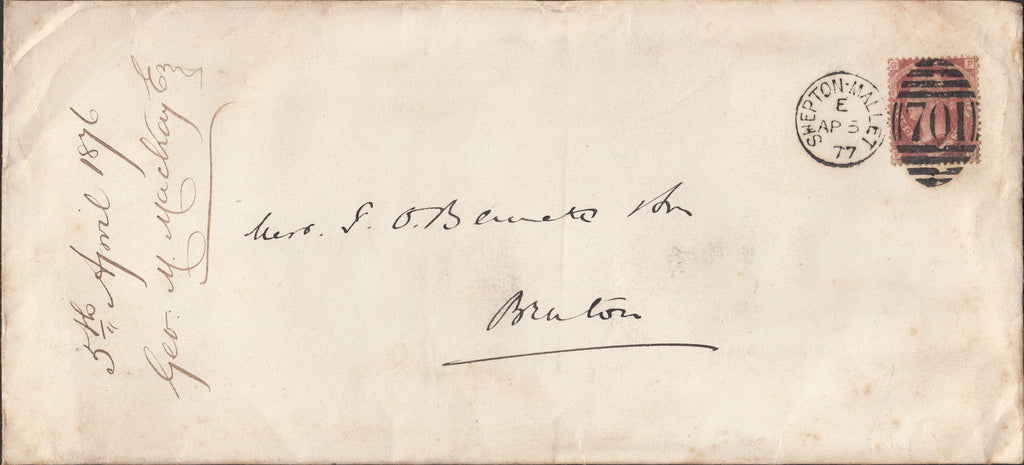 5th April 1876
Geo. M. Mackay Esq
SHEPTON-MALLET
E
AP 5
77
G P
701
Messrs. T. O. Bennett & Son
Bruton